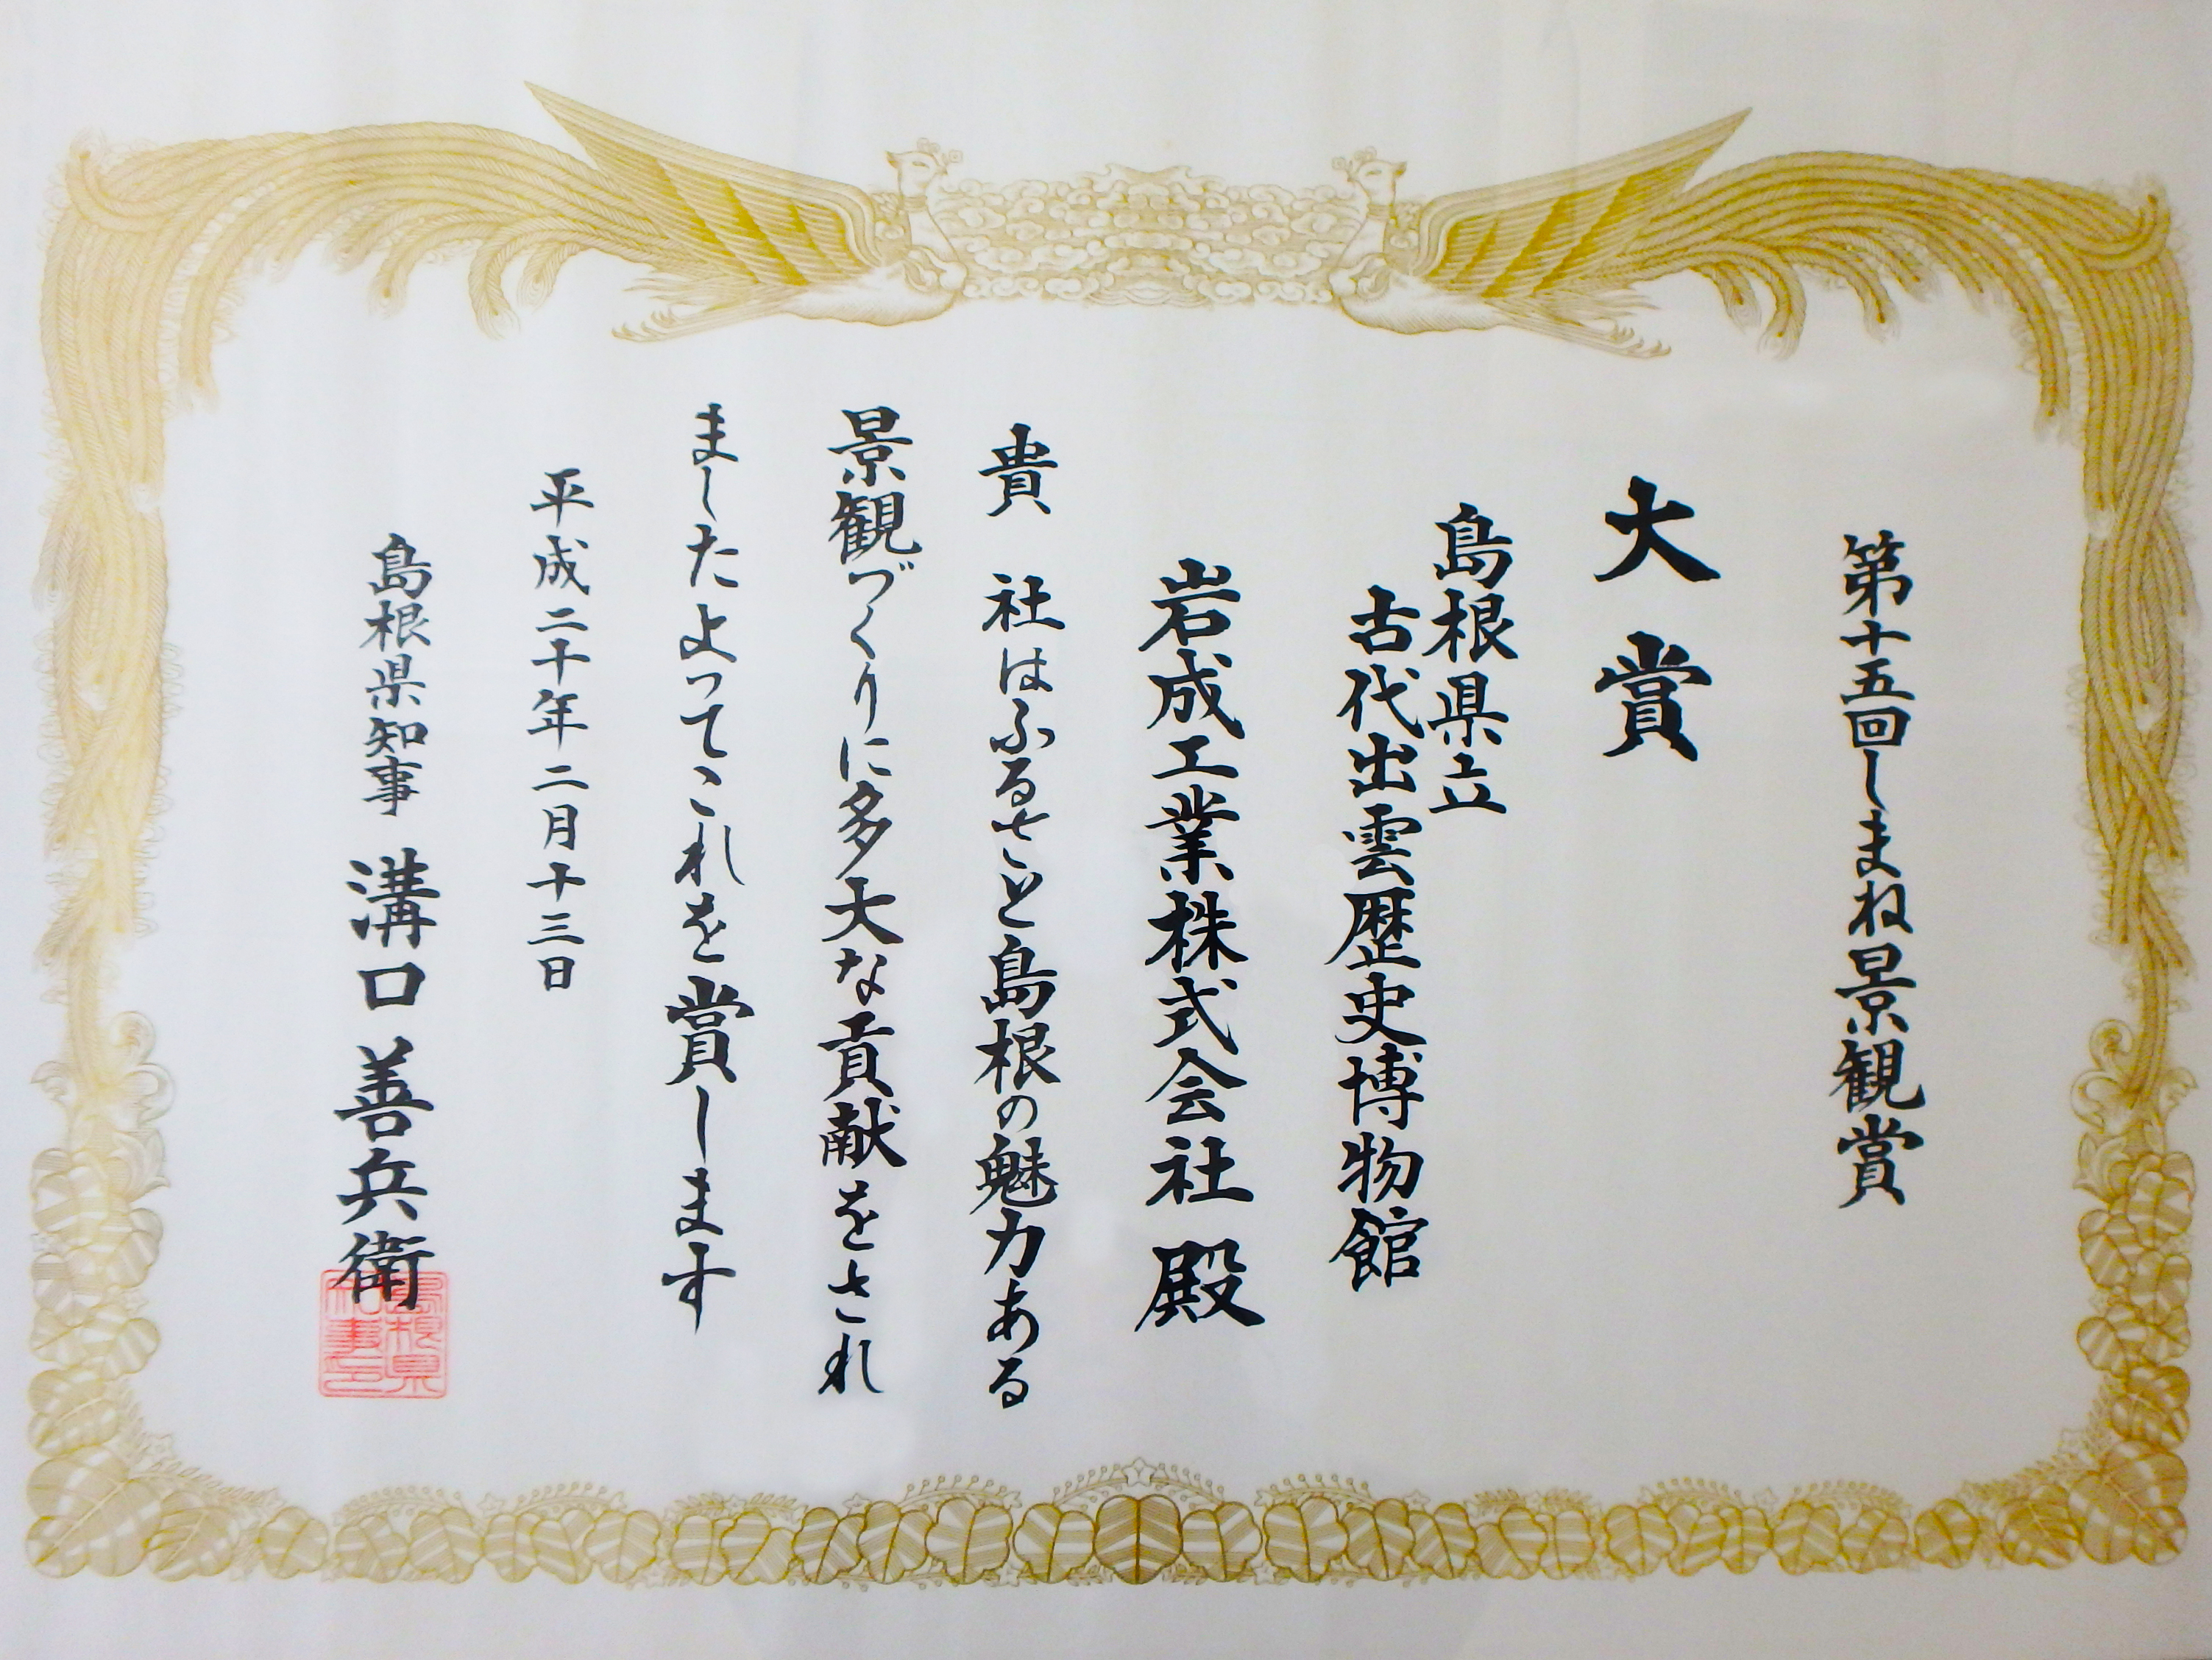 第十五回しまね景観賞
大賞
島根県立
古代出雲歴史博物館
岩成工業株式会社 殿
貴 社はふるさと島根の魅力ある
景観づくりに多大な貢献をされ
ましたよってこれを賞します
平成二十年二月十三日
島根県知事 溝口善兵衛
島根県知事印